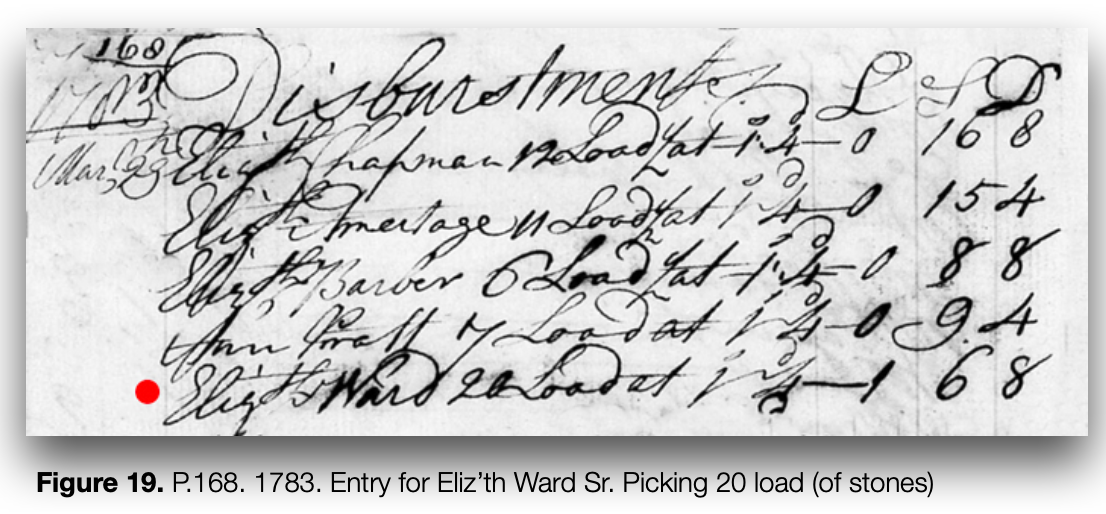 168
1783 Disburstments L S D
Mar 29th Elizth Chapman 12 Load ½ at 1s 4d — 0 16 8
Elizth Amertage 11 Load ½ at 1s 4d — 0 15 4
Elizth Barber 6 Load ½ at 1s 4d — 0 8 8
Ann Pratt 7 Load at 1s 4d — 0 9 4
Elizth Ward 20 Load at 1s 4d — 1 6 8
Figure 19. P.168. 1783. Entry for Eliz’th Ward Sr. Picking 20 load (of stones)